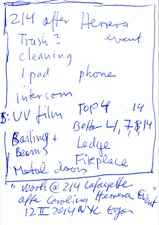 214 after Herrera
Trash? event
cleaning
Ipad phone
intercom
UV film TOP 4 14
Bottom 4, 7 & 14
Railing + Ledge
Beams Fireplace
Metal doors
"Work @ 214 Lafayette
after Carolina Herrera Event"
12 II 2014 NYC